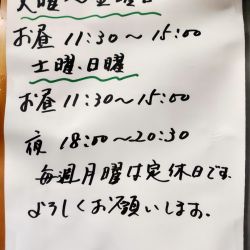 火曜〜金曜日
お昼 11:30〜15:00
土曜、日曜
お昼 11:30〜15:00
夜 18:00〜20:30
毎週月曜は定休日です
よろしくお願いします。